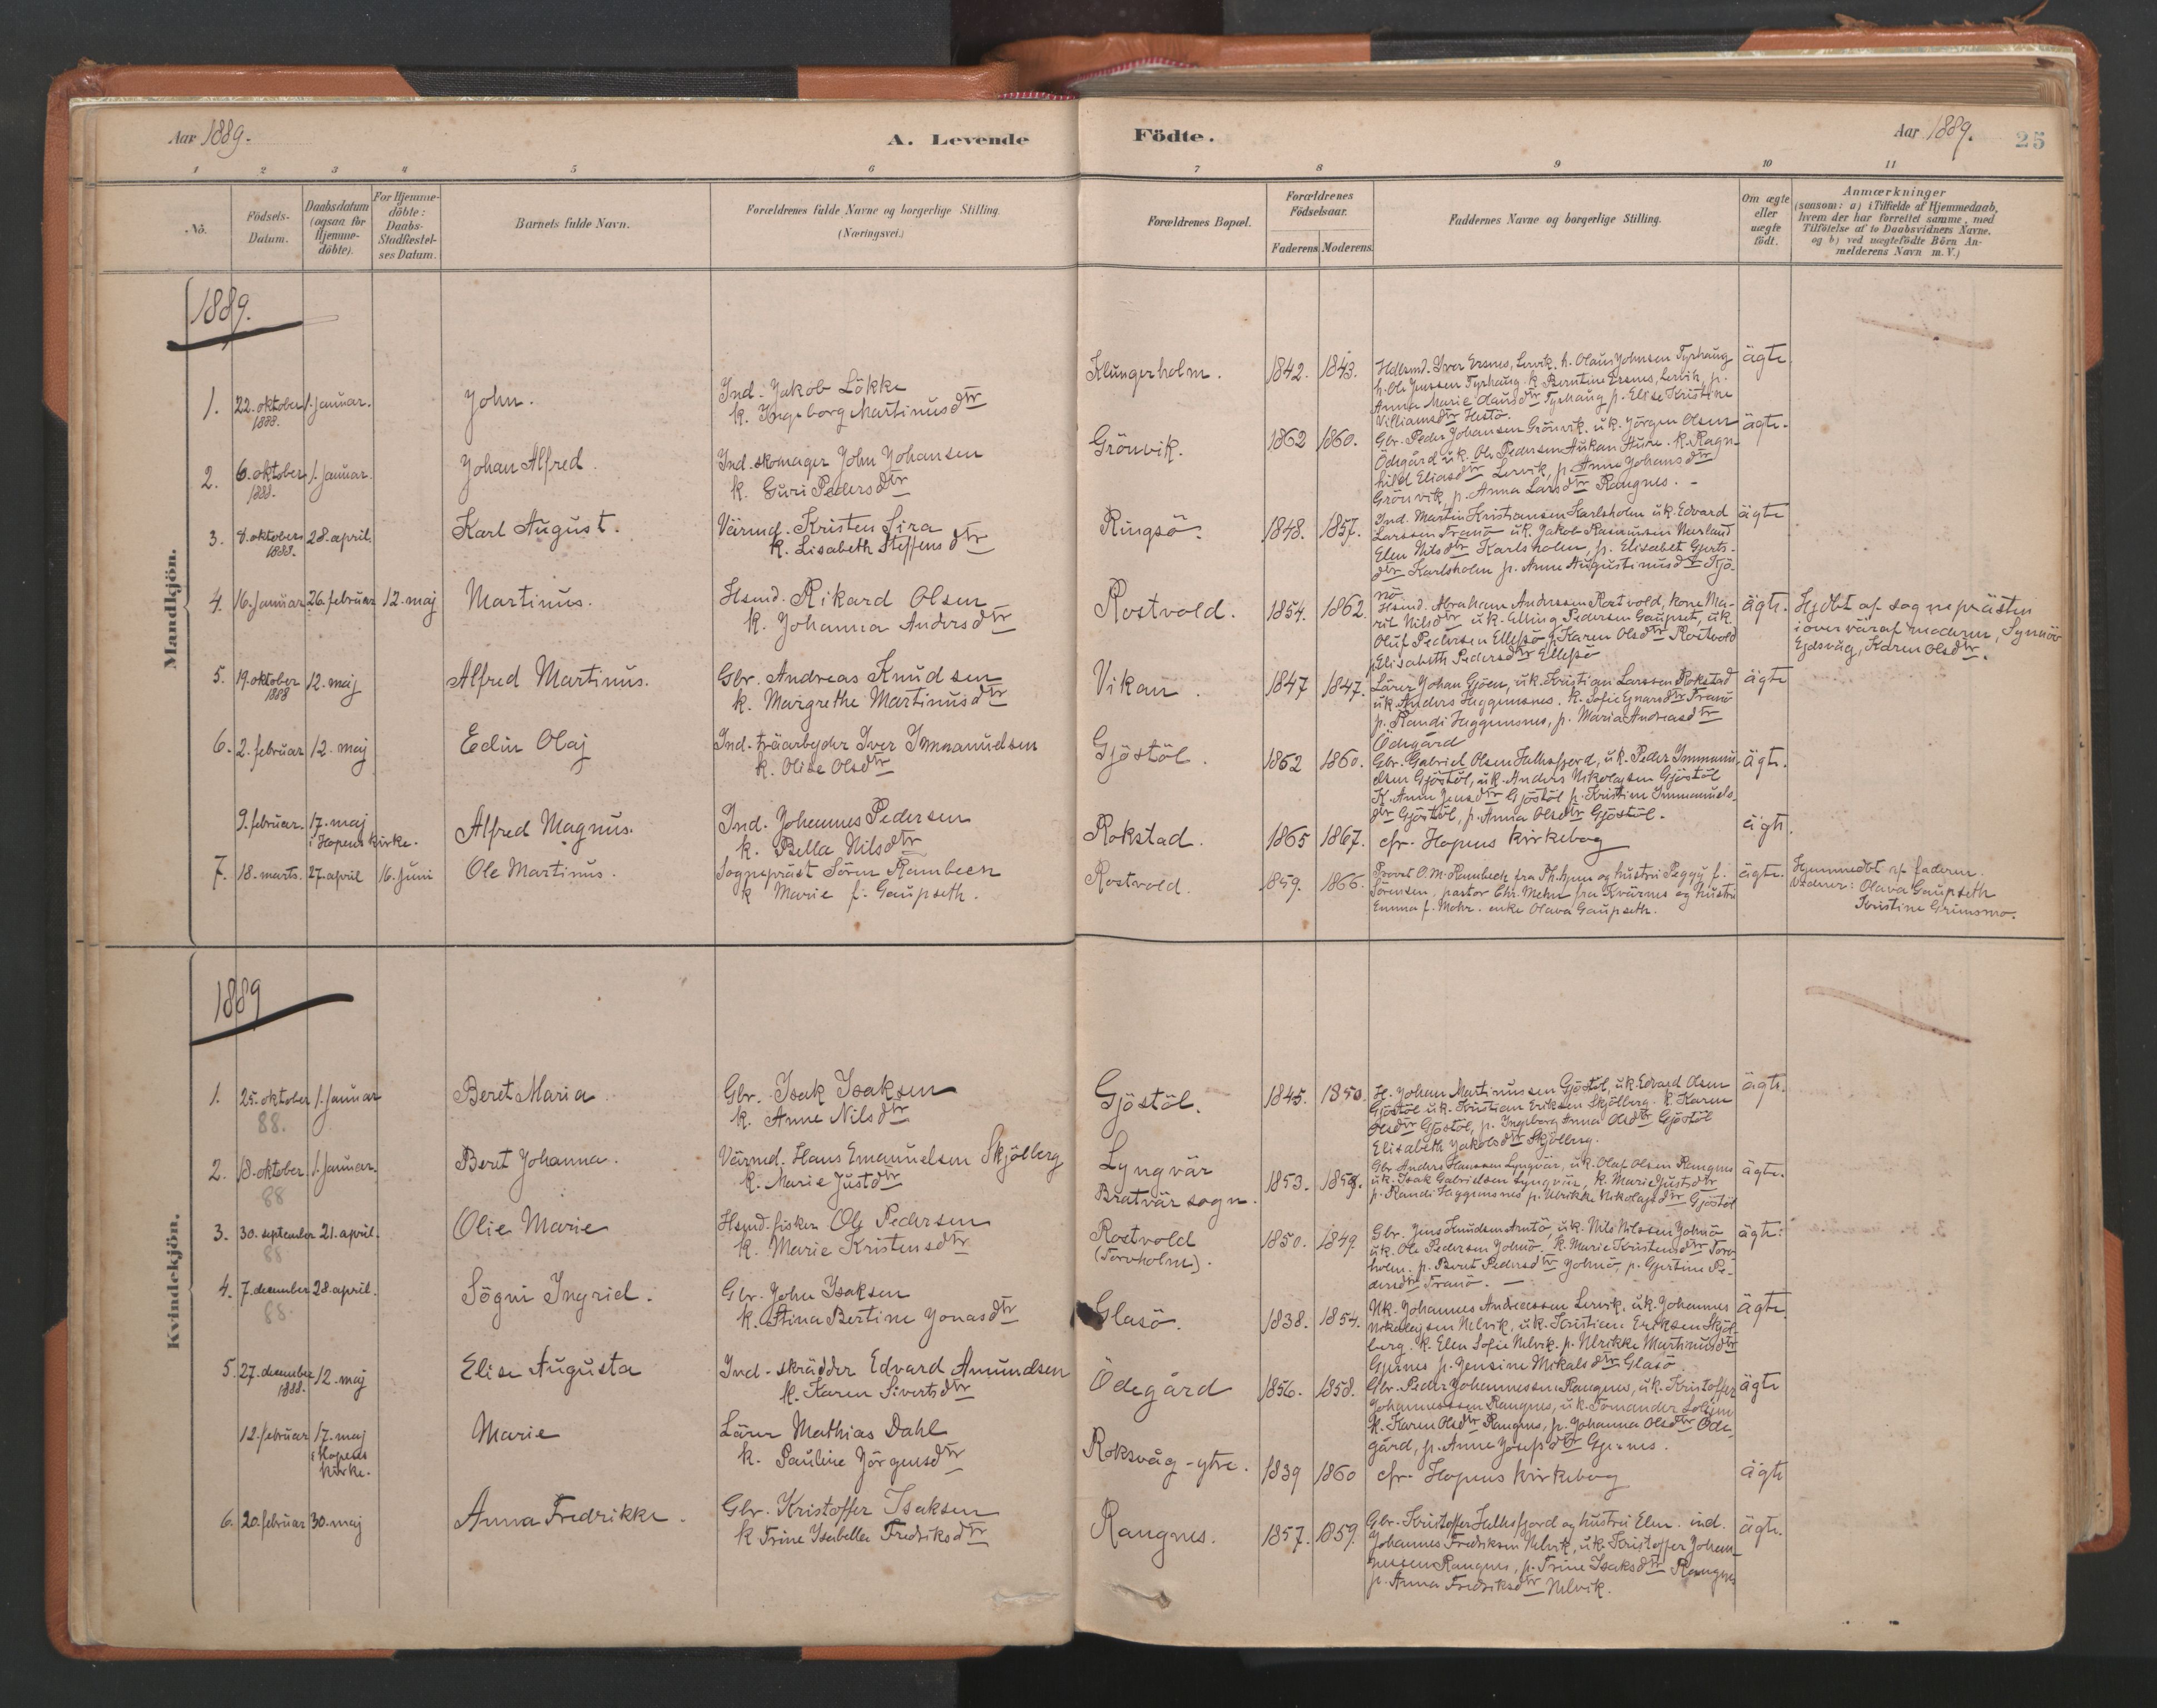 Aar 1889.
A. Levende
Födte.
Aar 1889.
25
1 2 3 4 5 6 7 8 9 10 11
No.
Födsels-
Datum.
Daabsdatum
(ogsaa for
Hjemme-
döbte).
For Hjemme-
döbte:
Daabs-
Stadfæstel-
ses Datum.
Barnets fulde Navn.
Forældrenes fulde Navne og borgerlige Stilling.
(Næringsvei.)
Forældrenes Bopæl.
Forældrenes
Födselsaar.
Faderens. Moderens.
Faddernes Navne og borgerlige Stilling.
Om ægte
eller
uægte
födt.
Anmærkninger
(saasom: a) i Tilfælde af Hjemmedaab,
hvem der har forrettet samme, med
Tilföielse af to Daabsvidners Navne,
og b) ved uægtefödte Börn An-
melderens Navn m. V.)
Mandkjön.
1889.
1. 22. oktober 1. januar.
1888.
John.
Ind. Jakob Lökke
k. Ingeborg Martinusdtr
Klungerholm.
1842. 1843.
Anna Marie Olausdtr Tyrhaug p. Elise Kristine
Villiamsdtr Hestö.
ägte.
2. 6. oktober 1. januar.
1888.
Johan Alfred.
Ind. skomager John Johansen
k. Guri Pedersdtr
Grönvik.
1862 1860.
Gbr. Peder Johansen Grönvik. uk. Jörgen Olsen
Ödegård uk. Ole Pedersen Aukan Ture. k. Ragn-
hild Eliasdtr Lervik, p. Anne Johansdtr
Grönvik, p. Anna Larsdtr Rangnes. -
ägte.
3. 8. oktober 28. april.
1888.
Karl August.
Värmd. Kristen Lira
k. Lisabeth Steffensdtr
Ringsö.
1848. 1857.
Ind. Martin Kristiansen Karlsholm uk. Edvard
Larssen Tranö uk. Jakob Rasmussen Merland
Elen Nilsdtr Karlsholm, p. Elisabet Gjerts-
dtr Karlsholm p. Anne Augustinusdtr Kjö-
nö.
ägte
4. 16. januar 26. februar 12. maj
Martinus.
Hsmd. Rikard Olsen
k. Johanna Andersdtr
Rostvold.
1854. 1862.
Hsmd. Abraham Anderssen Rostvold, kone Ma-
rit Nilsdtr uk. Elling Pedersen Gaupset, uk.
Oluf Pedersen Ellefsö p. Karen Olsdtr Rostvold
p. Elisabeth Pedersdtr Ellefsö
ägte.
Hjdbt af sognepräst en
i overvär af moderen, Synnöv
Ejdsvåg, Karen Olsdtr.
5. 19. oktober 12. maj
1888
Alfred Martinus.
Gbr. Andreas Knudsen
k. Margrethe Martinusdtr
Vikan.
1847 1847.
Lärer Johan Gjöen, uk. Kristian Larssen Rokstad
uk. Anders Häggemsnes. k. Sofie Ejnarsdtr Tranö
p. Randi Häggemsnes, p. Maria Andreasdtr
Ödegård
ägte
6. 2. februar 12. maj
Edin Olaj
Ind. träarbejder Iver Immanuelsen
k. Olise Olsdtr
Gjöstöl.
1862 1860.
Gbr. Gabriel Olsen Halksfjord, uk. Peder Immanu-
elsen Gjöstöl, uk. Anders Nikolajsen Gjöstöl
K. Anne Jensdtr Gjöstöl p. Kristine Immanuels-
dtr Gjöstöl, p. Anna Olsdtr Gjöstöl.
ägte.
9. februar. 17. maj
i Hopens kirke.
Alfred Magnus.
Ind. Johannes Pedersen
k. Bella Nilsdtr
Rokstad.
1865 1867.
cfr. Hopens kirkebog
ägte.
7. 18. marts. 27. april 16. juni
Ole Martinus.
Sognepräst Sören Rambech
k. Marie f. Gaupseth.
Rostvold.
1859. 1866.
Provst O. M. Rambech fra Th.hjem og hustru Peggy f.
Sörensen, pastor Chr. Mehn fra Kvärnes og hustru
Emma f. Mohr. enke Olava Gaupseth.
ägte.
Hjemmedbt af faderen.
Vidner: Olava Gaupseth
Kristine Grimsmo.
Kvindekjön.
1889
1. 25. oktober 1. januar
88.
Beret Maria.
Gbr. Isak Isaksen
k. Anne Nilsdtr
Gjöstöl.
1845. 1850.
H. Johan Martinussen Gjöstöl, uk. Edvard Olsen
Gjöstöl uk. Kristian Eriksen Skjölberg. k. Karen
Olsdtr Gjöstöl, p. Ingeborg Anna Olsdtr Gjöstöl
Elisabeth Jakobsdtr Skjölberg.
ägte.
2. 18. oktober 1. januar.
88
Beret Johanna.
Värmd. Hans Emanuelsen Skjölberg
k. Marie Justdtr
Lyngvär
Bratvär sogn.
1853. 1858.
Gbr. Anders Hanssen Lyngvär, uk. Olaf Olsen Rangnes
uk. Isak Gabrielsen Lyngvär, k. Marie Justsdtr
p. Randi Häggemsnes p. Ulrikke Nikolajsdtr Gjöstöl
ägte.
3. 30. september 21. april.
88
Olie Marie
Hsmd. fisker Ole Pedersen
k. Marie Kristensdtr
Rostvold
(Torvholm).
1850. 1849.
Gbr. Jens Knudsen Arntö, uk. Nils Nilssen Jolmö
uk. Ole Pedersen Jolmö. k. Marie Kristensdtr Torv-
holm. p. Beret Pedersdtr Jolmö, p. Gjertine Pe-
dersdtr Tranö. —
ägte.
4. 7. desember 28. april.
88.
Sögni Ingrid.
Gbr. John Isaksen
k. Stina Bertine Jonasdtr
Glasö.
1838. 1854.
Uk. Johannes Andreassen Lervik, uk. Johannes
Nikolajsen Nelvik, uk. Kristian Eriksen Skjöl-
berg. k. Elen Sofie Nelvik. p. Ulrikke Martinusdtr
Gjernes p. Jensine Mikalsdtr Glasö.
ägte.
5. 27. desember 12. maj
1888.
Elise Augusta
Ind. skrädder Edvard Amundsen
k. Karen Sivertsdtr
Ödegård
1856. 1858.
Gbr. Peder Johannessen Rangnes, uk. Kristoffer
Johannessen Rangnes, uk. Fernander
k. Karen Olsdtr Rangnes, p. Johanna Olsdtr Öde-
gård, p. Anne Josefsdtr Gjernes.
ägte
12. februar 17. maj
i Hopens
kirke.
Marie
Lärer Mathias Dahl
k. Pauline Jörgensdtr
Roksvåg-ytre.
1839 1860
cfr. Hopens kirkebog
ägte
6. 20. februar 30. maj
Anna Fredrikke.
Gbr. Kristoffer Isaksen
k. Trine Isabella Fredriksdtr
Rangnes.
1857. 1859.
Gbr. Kristoffer Halksfjord og hustru Elen. ind.
Johannes Fredriksen Nelvik, uk. Kristoffer Johan-
nessen Rangnes, p. Trine Isaksdtr Rangnes
p. Anna Fredriksdtr Nelvik.
ägte.